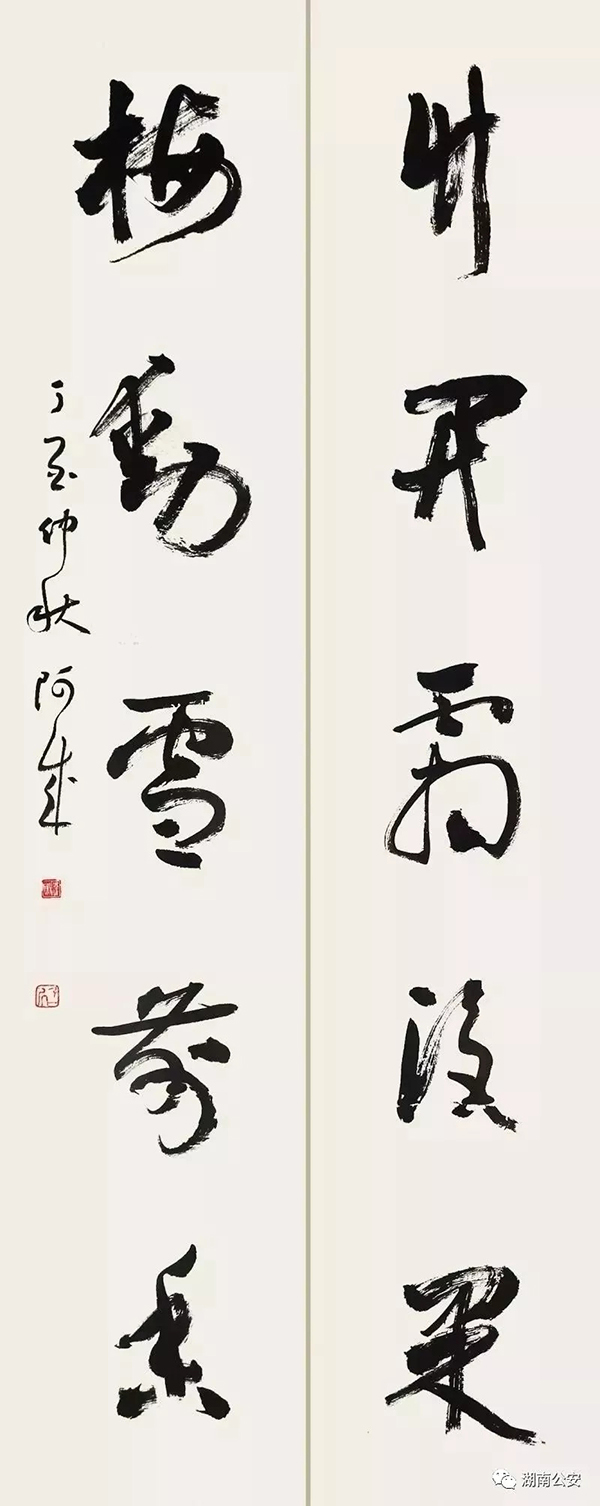 竹開霜後翠
梅動雪前香
丁酉仲秋阿成
湖南公安